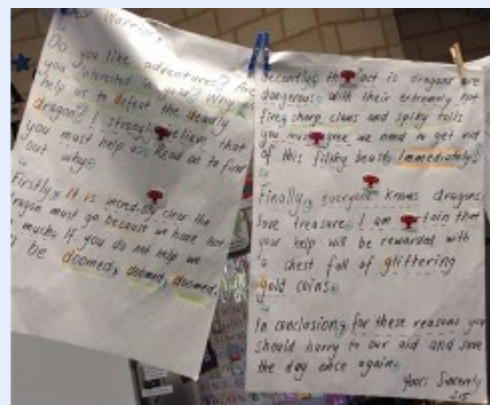 Warrior,
Do you like adventures? Are
you interested in gold? Why
help us to defeat the deadly
dragon? I strongly believe that
you must help us. Read on to find
out why.
Firstly, it is incredibly clear the
dragon must go because we have lost
much. If you do not help we
be doomed, doomed, doomed.
Secondly, the fact is dragons are
dangerous. With their extremely hot
fire, sharp claws and spiky tails
you must agree we need to get rid
of this filthy beast immediately!
Finally, everyone knows dragons
love treasure. I am certain that
your help will be rewarded with
a chest full of glittering
gold coins.
In conclusion, for these reasons you
should hurry to our aid and save
the day once again.
Yours Sincerely